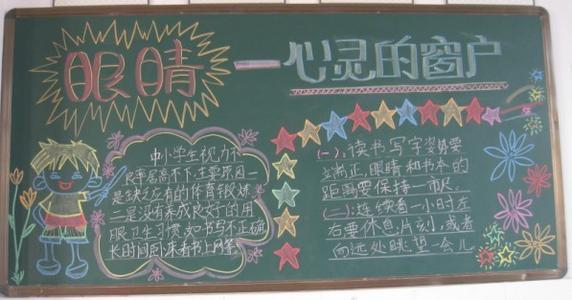 眼睛—心灵的窗户
中小学生视力不
良率居高不下,主要原因一
是缺乏应有的体育锻炼
二是没有养成良好的用
眼卫生习惯,如书写不正确
长时间卧床看书上网等
(一)、读书写字姿势要
端正,眼睛和书本的
距离要保持一市尺。
(二)、连续看一小时左
右要休息片刻,或者
向远处眺望一会儿